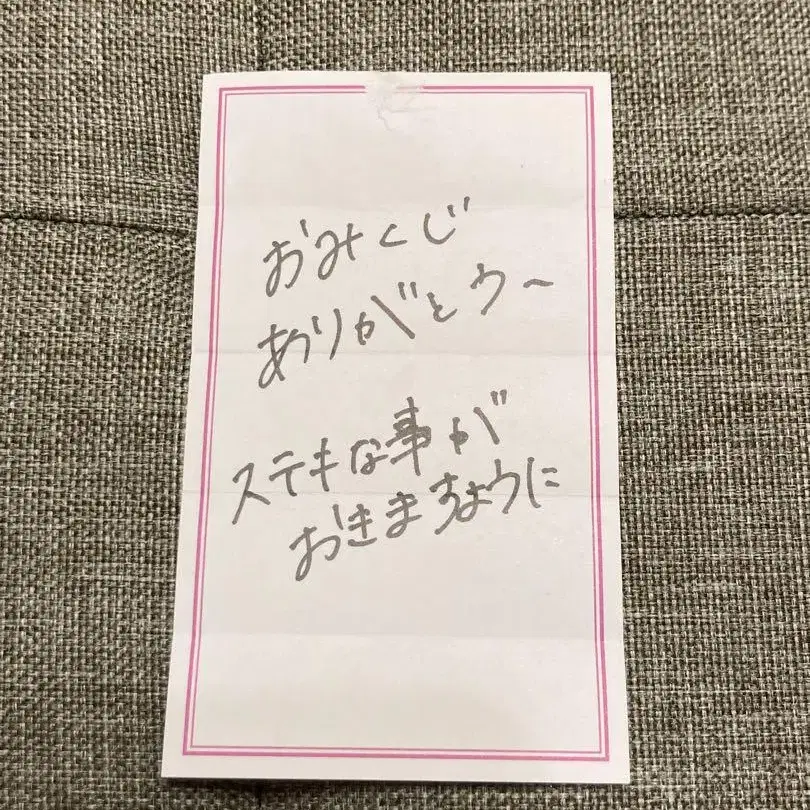 おみくじ
ありがとウ〜
ステキな事が
おきますようウに